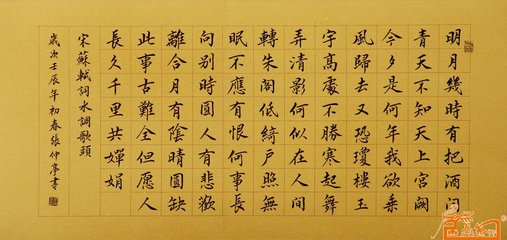 明月幾時有把酒问
青天不知天上宮闕
今夕是何年我欲乘
風歸去又恐瓊樓玉
宇高處不勝寒起舞
弄清影何似在人間
轉朱阁低綺户照無
眠不應有恨何事長
向别時圓人有悲歡
離合月有陰晴圓缺
此事古難全但愿人
長久千里共嬋娟
宋蘇軾詞水調歌頭
歲次壬辰年初春張仲亭書